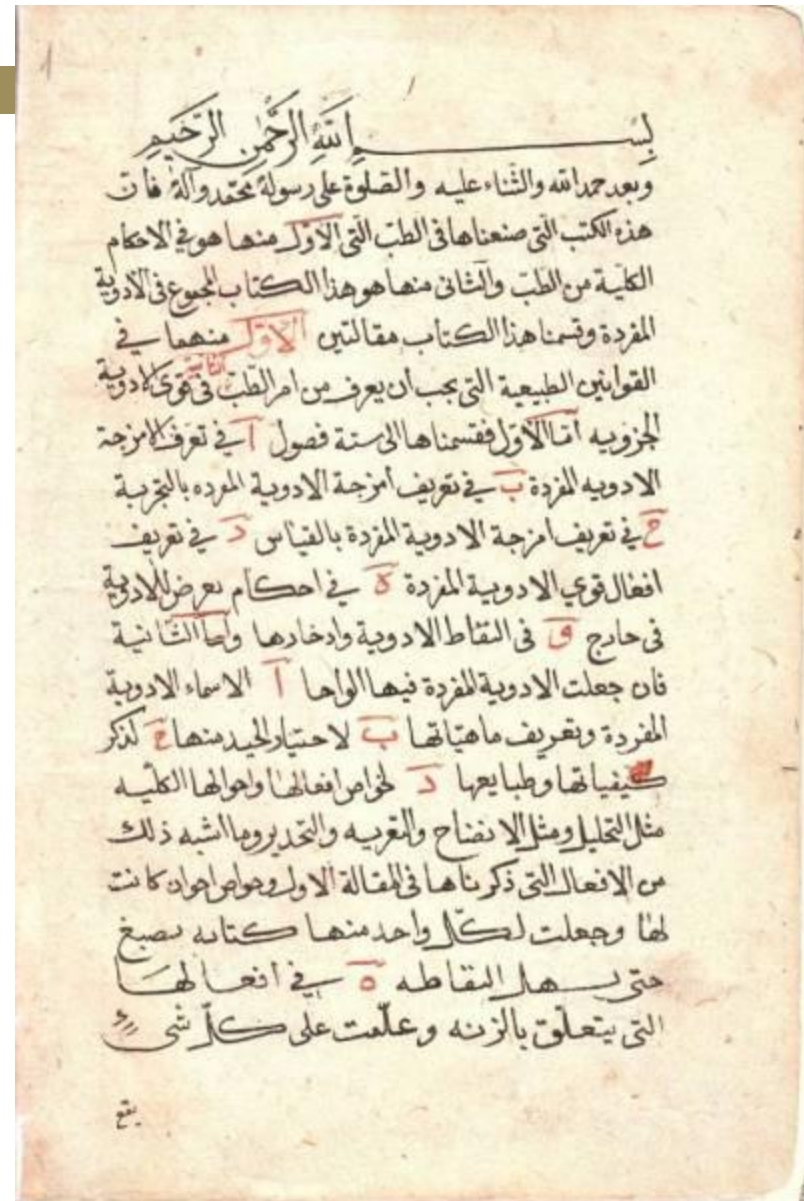 بســم الله الرحمن الرحيم
وبعد حمد الله والثناء عليه والصلوة على رسوله محمد وآله فان
هذه الكتب التى صنعناها فى الطب التى الاول منها هو في الاحكام
الكلية من الطب والثانى منها هو هذا الكتاب المجموع فى الادوية
المفردة وقسمنا هذا الكتاب مقالتين الاول منهما في
القوانين الطبيعية التى يجب ان يعرف من امر الطب الثانية فى قوى الادوية
الجزويه أما الاول فقسمناها الى ستة فصول ا في تعرف الامزجة
الادويه المفردة ب في تعريف امزجة الادوية المفرده بالتجربة
ج في تعريف امزجة الادوية المفردة بالقياس د في تعريف
افعال قوي الادوية المفردة ه في احكام يعرض للادوية
فى خارج و فى التقاط الادوية وادخارها وأما الثانية
فان جعلت الادوية المفردة فيها الواحا ا الاسماء الادوية
المفردة وتعريف ماهياتها ب لاختيار الجيد منها ج لذكر
كيفياتها وطبايعها د لخواص افعالها واحوالها الكليه
مثل التحليل ومثل الانضاج والتغريه والتخدير وما اشبه ذلك
من الافعال التى ذكرناها فى المقالة الاول وخواص اخوان كانت
لها وجعلت لكل واحد منها كتابه بصبغ
حتى يسهل التقاطه ه في افعالها
التى يتعلق بالزنه وعلمت على كل شى
يقع